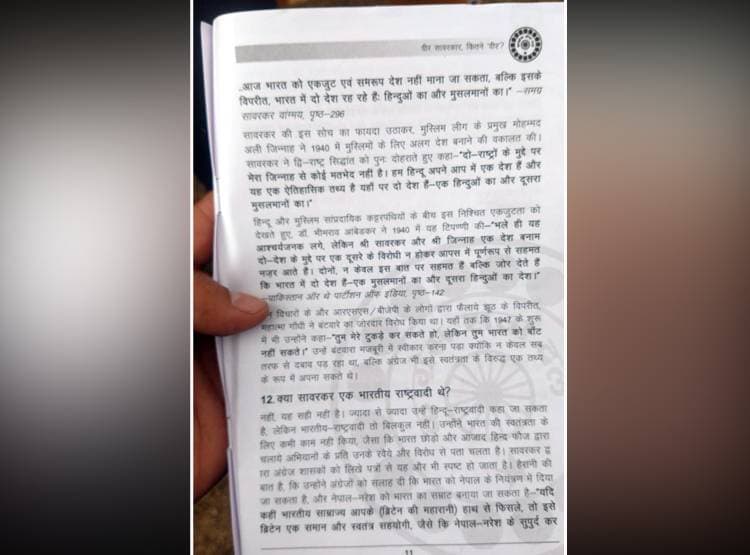 वीर सावरकर, कितने 'वीर'?
"आज भारत को एकजुट एवं समरूप देश नहीं माना जा सकता, बल्कि इसके
विपरीत, भारत में दो देश रह रहे हैः हिन्दुओं का और मुसलमानों का।" –समग्र
सावरकर वांग्मय, पृष्ठ–296
सावरकर की इस सोच का फायदा उठाकर, मुस्लिम लीग के प्रमुख मोहम्मद
अली जिन्नाह ने 1940 में मुस्लिमों के लिए अलग देश बनाने की वकालत की।
सावरकर ने द्वि–राष्ट्र सिद्धांत को पुनः दोहराते हुए कहा–"दो–राष्ट्रों के मुद्दे पर
मेरा जिन्नाह से कोई मतभेद नहीं है। हम हिन्दू अपने आप में एक देश हैं और
यह एक ऐतिहासिक तथ्य है यहाँ पर दो देश हैं–एक हिन्दुओं का और दूसरा
मुसलमानों का।"
हिन्दू और मुस्लिम सांप्रदायिक कट्टरपंथियों के बीच इस निश्चित एकजुटता को
देखते हुए, डॉ. भीमराव आंबेडकर ने 1940 में यह टिप्पणी की–"भले ही यह
आश्चर्यजनक लगे, लेकिन श्री सावरकर और श्री जिन्नाह एक देश बनाम
दो–देश के मुद्दे पर एक दूसरे के विरोधी न होकर आपस में पूर्णरूप से सहमत
नजर आते हैं। दोनों, न केवल इस बात पर सहमत हैं बल्कि जोर देते हैं
कि भारत में दो देश हैं–एक मुसलमानों का और दूसरा हिन्दुओं का देश।"
–पाकिस्तान और थे पार्टीशन ऑफ इंडिया, पृष्ठ–142
विचारों के और आरएसएस/बीजेपी के लोगों द्वारा फैलाये झूठ के विपरीत,
महात्मा गाँधी ने बंटवारे का जोरदार विरोध किया था। यहाँ तक कि 1947 के शुरू
में भी उन्होंने कहा–"तुम मेरे टुकड़े कर सकते हो, लेकिन तुम भारत को बाँट
नहीं सकते।" उन्हें बंटवारा मजबूरी में स्वीकार करना पड़ा क्योंकि न केवल सब
तरफ से दबाव पड़ रहा था, बल्कि अंग्रेज भी इसे स्वतंत्रता के विरुद्ध एक तथ्य
के रूप में अपना सकते थे।
12. क्या सावरकर एक भारतीय राष्ट्रवादी थे?
नहीं, यह सही नही है। ज्यादा से ज्यादा उन्हें हिन्दू–राष्ट्रवादी कहा जा सकता
है, लेकिन भारतीय–राष्ट्रवादी तो बिलकुल नहीं। उन्होंने भारत की स्वतंत्रता के
लिए कभी काम नही किया, जैसा कि भारत छोड़ो और आजाद हिन्द फौज द्वारा
चलाये अभियानों के प्रति उनके रवैये और विरोध से पता चलता है। सावरकर द्व
ारा अंग्रेज शासकों को लिखे पत्रों से यह और भी स्पष्ट हो जाता है। हैरानी की
बात है, कि उन्होंने अंग्रेजों को सलाह दी कि भारत को नेपाल के नियंत्रण में दिया
जा सकता है, और नेपाल–नरेश को भारत का सम्राट बनाया जा सकता है–"यदि
कहीं भारतीय साम्राज्य आपके (ब्रिटेन की महारानी) हाथ से फिसले, तो इसे
ब्रिटेन एक समान और स्वतंत्र सहयोगी, जैसे कि नेपाल–नरेश के सुपुर्द कर
11